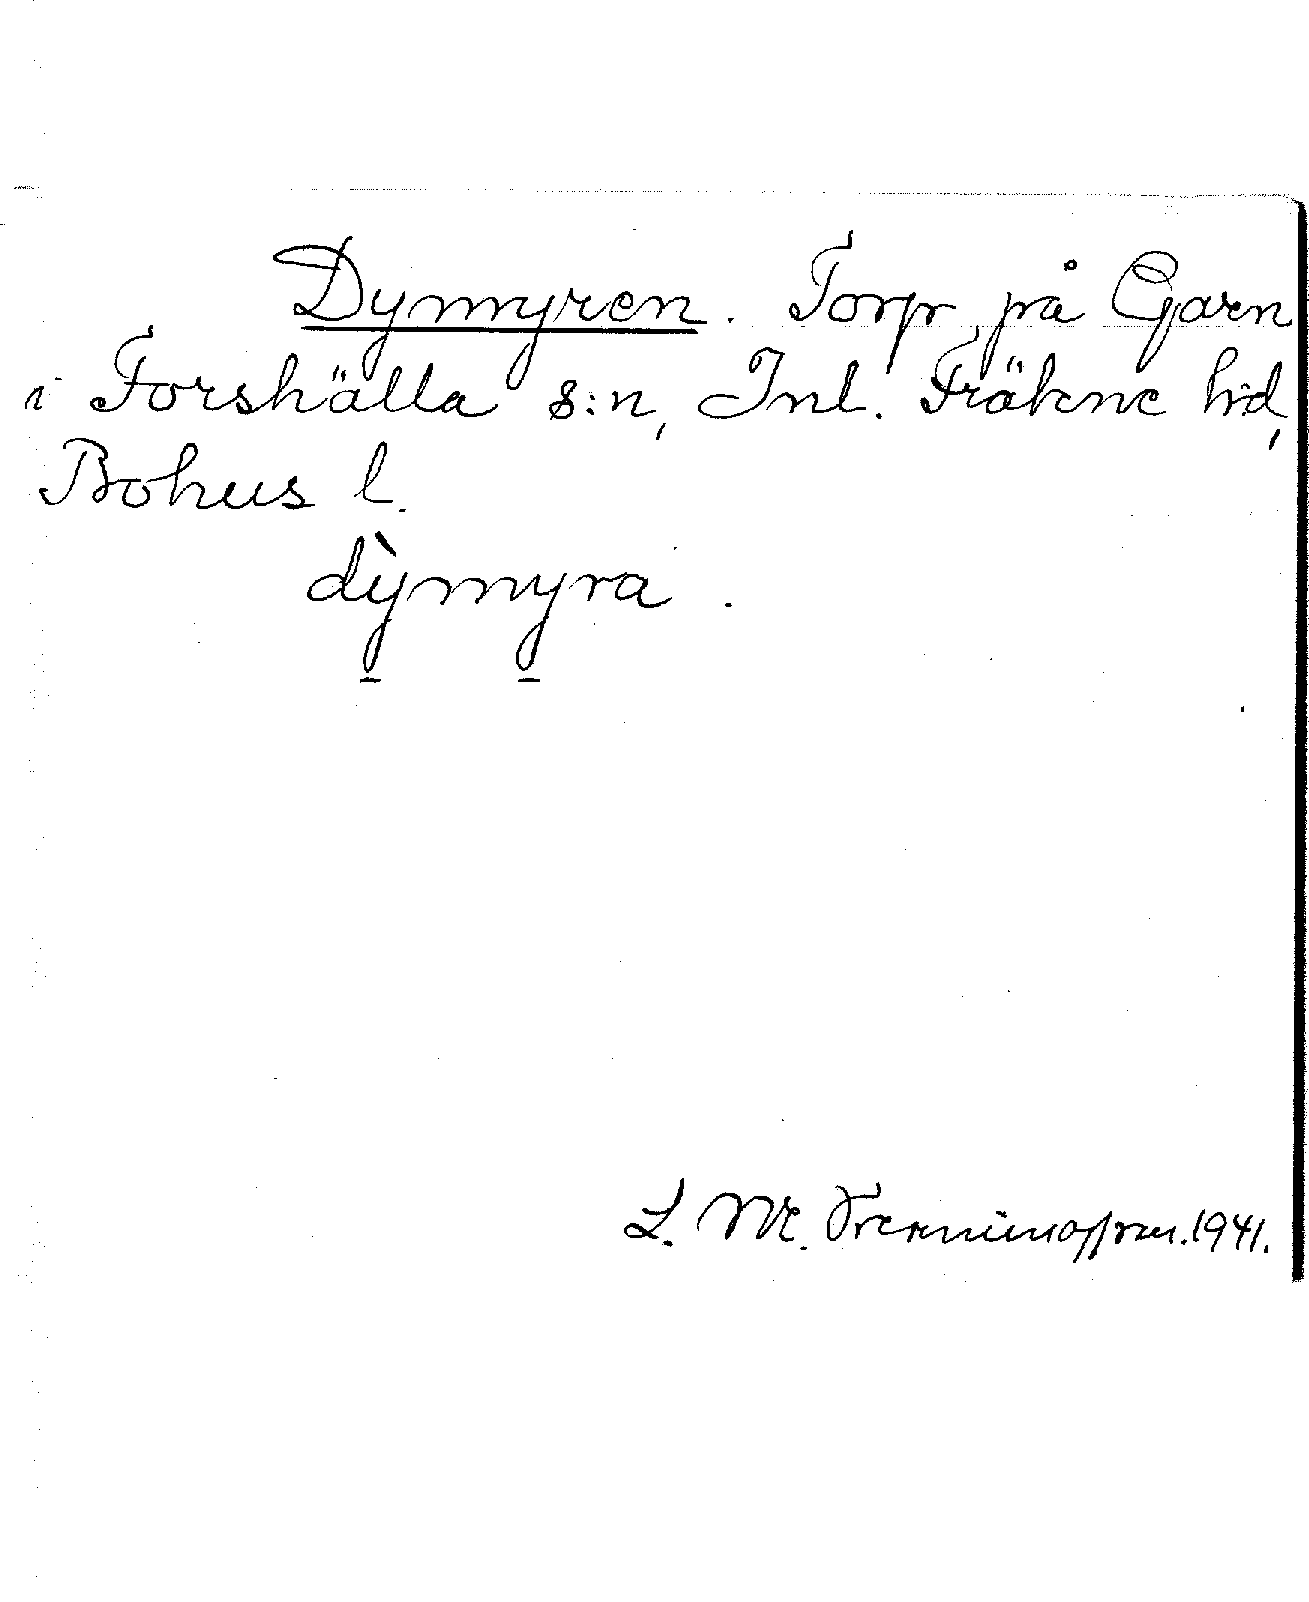 Dymyren. Torp på Garn
i Forshälla s:n, Inl. Fräkne hd,
Bohus l.
dỳmyra.
L. M. 1941.